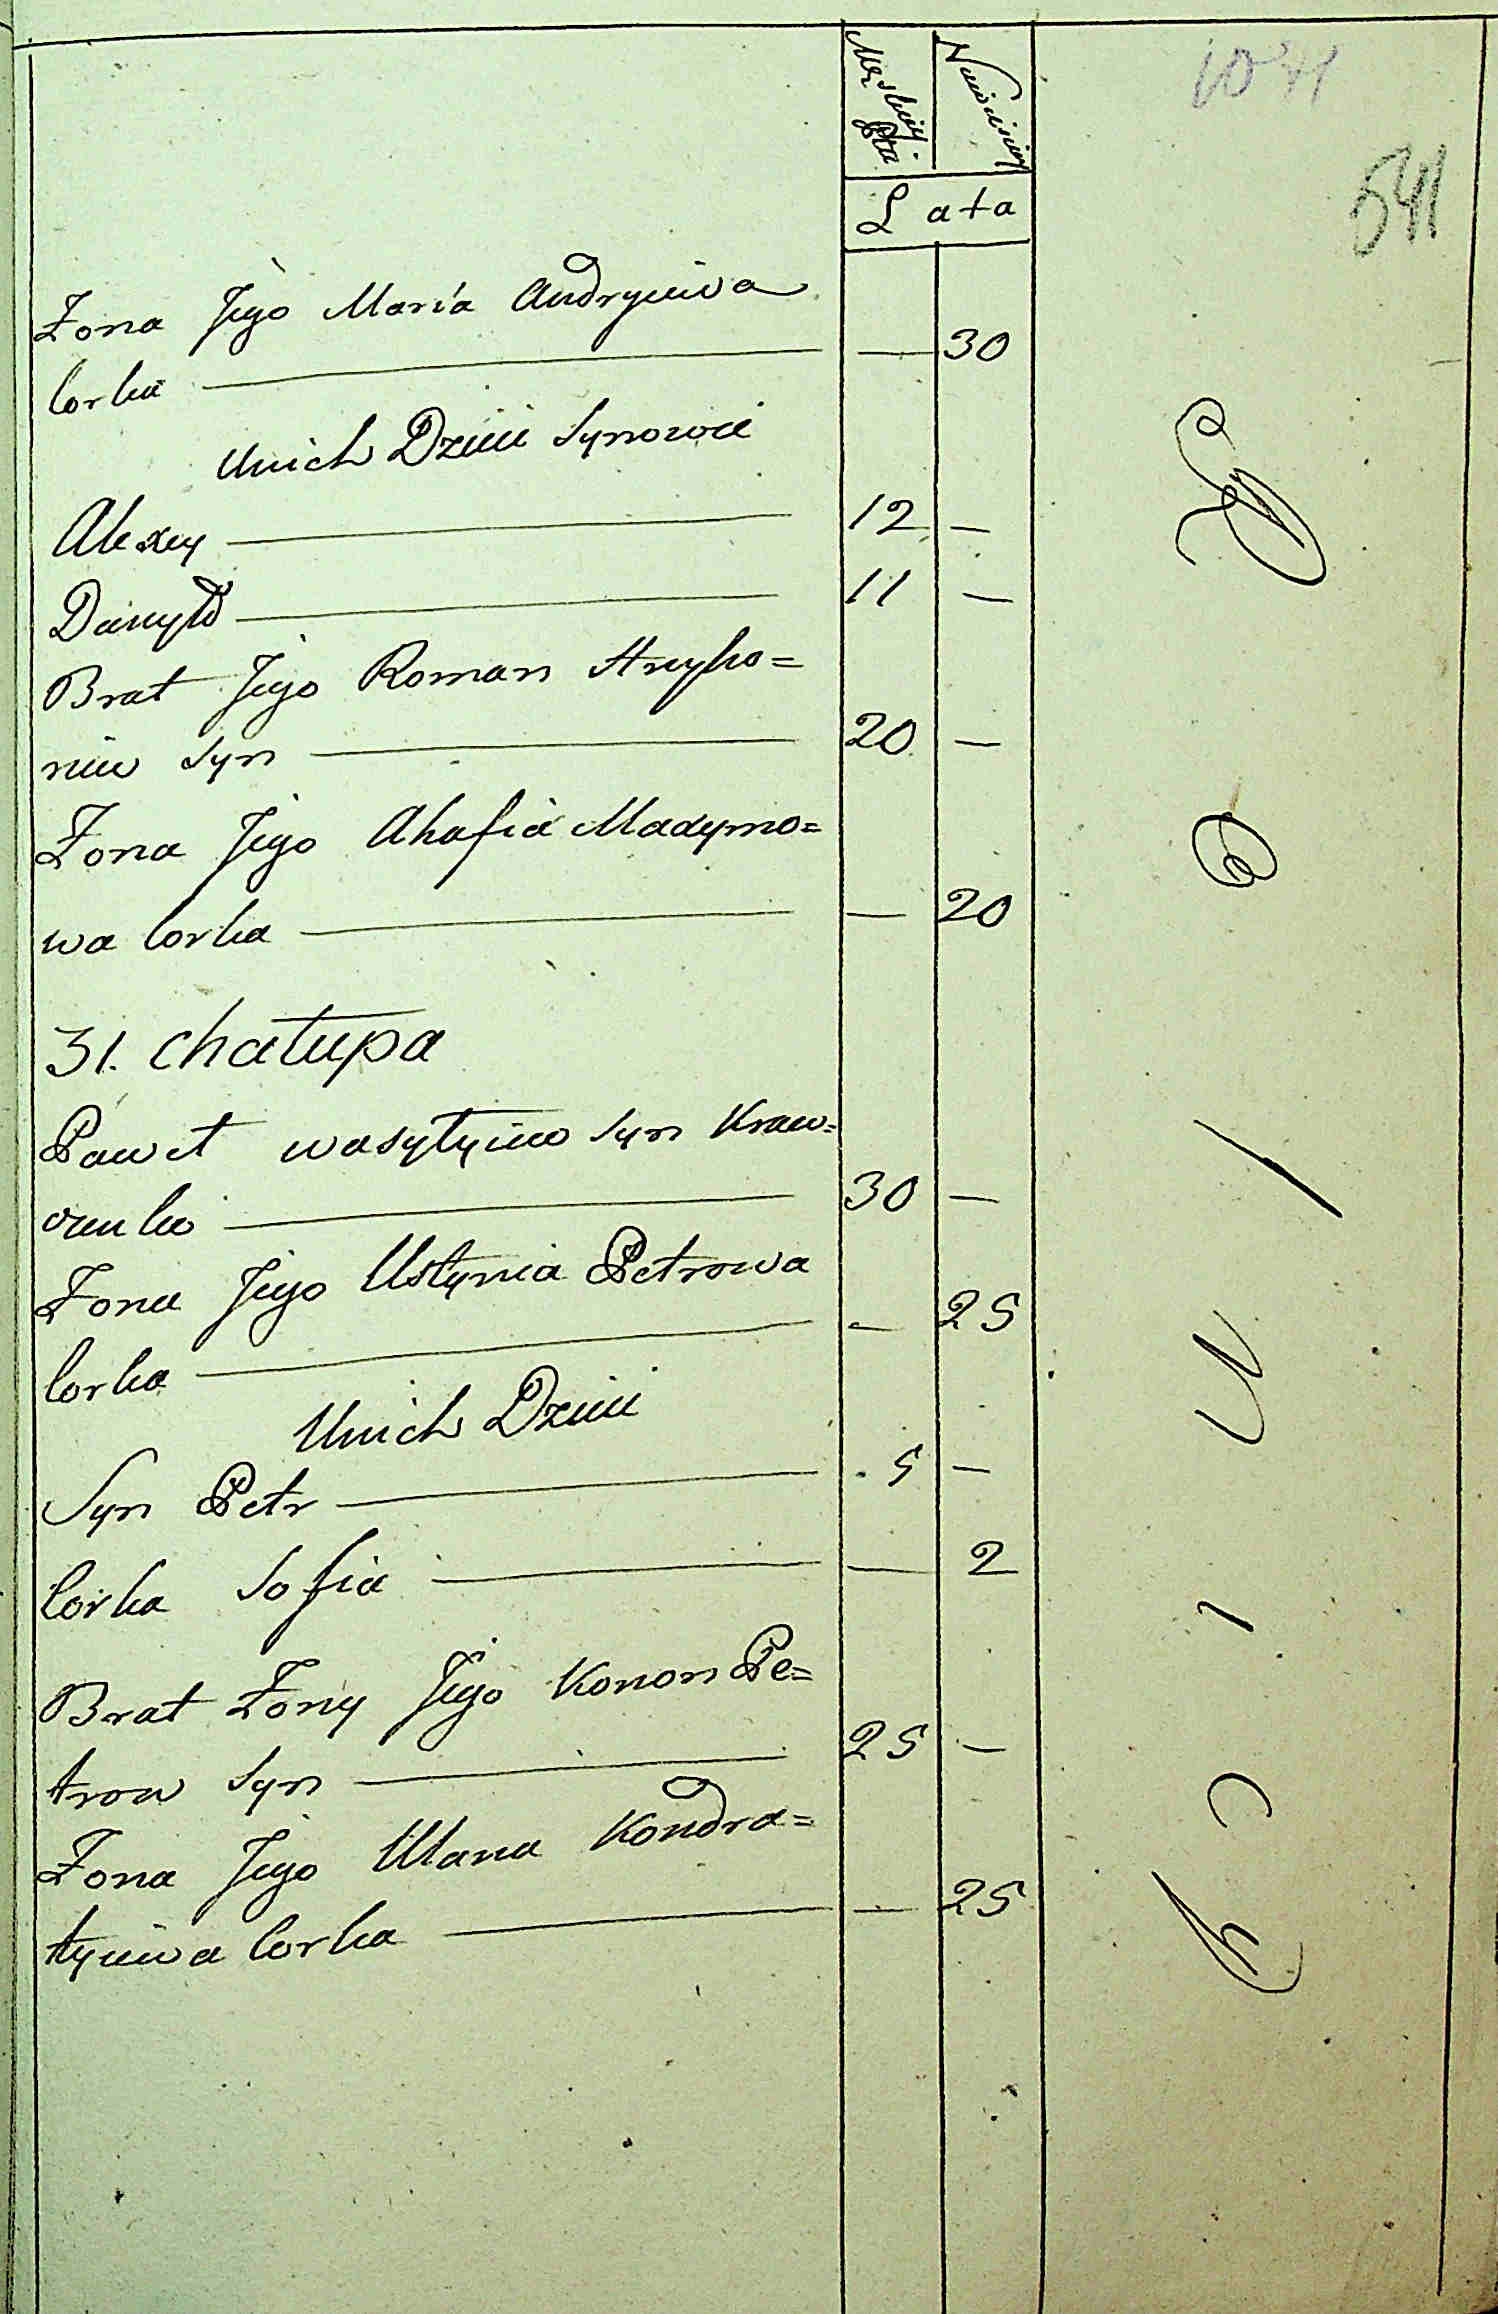 1041
541
Męskiej Płci
Niewieściej
Lata
Żona Jego Maria Andryiewa
Corka — — 30
U nich Dzieci Synowie
Alexey — 12 —
Danyło — 11 —
Brat Jego Roman Hryho=
riiw Syn — 20 —
Żona Jego Ahafia Maxymo=
wa Corka — — 20
31. Chałupa
Paweł Wasylyiew Syn Kraw=
czenko — 30 —
Żona Jego Ustynia Petrowa
Corka — — 25
U nich Dzieci
Syn Petr — 5 —
Corka Sofia — — 2
Brat Żony Jego Konon Pe=
trow Syn — 25 —
Żona Jego Ulana Kondra=
tyiewa Corka — — 25